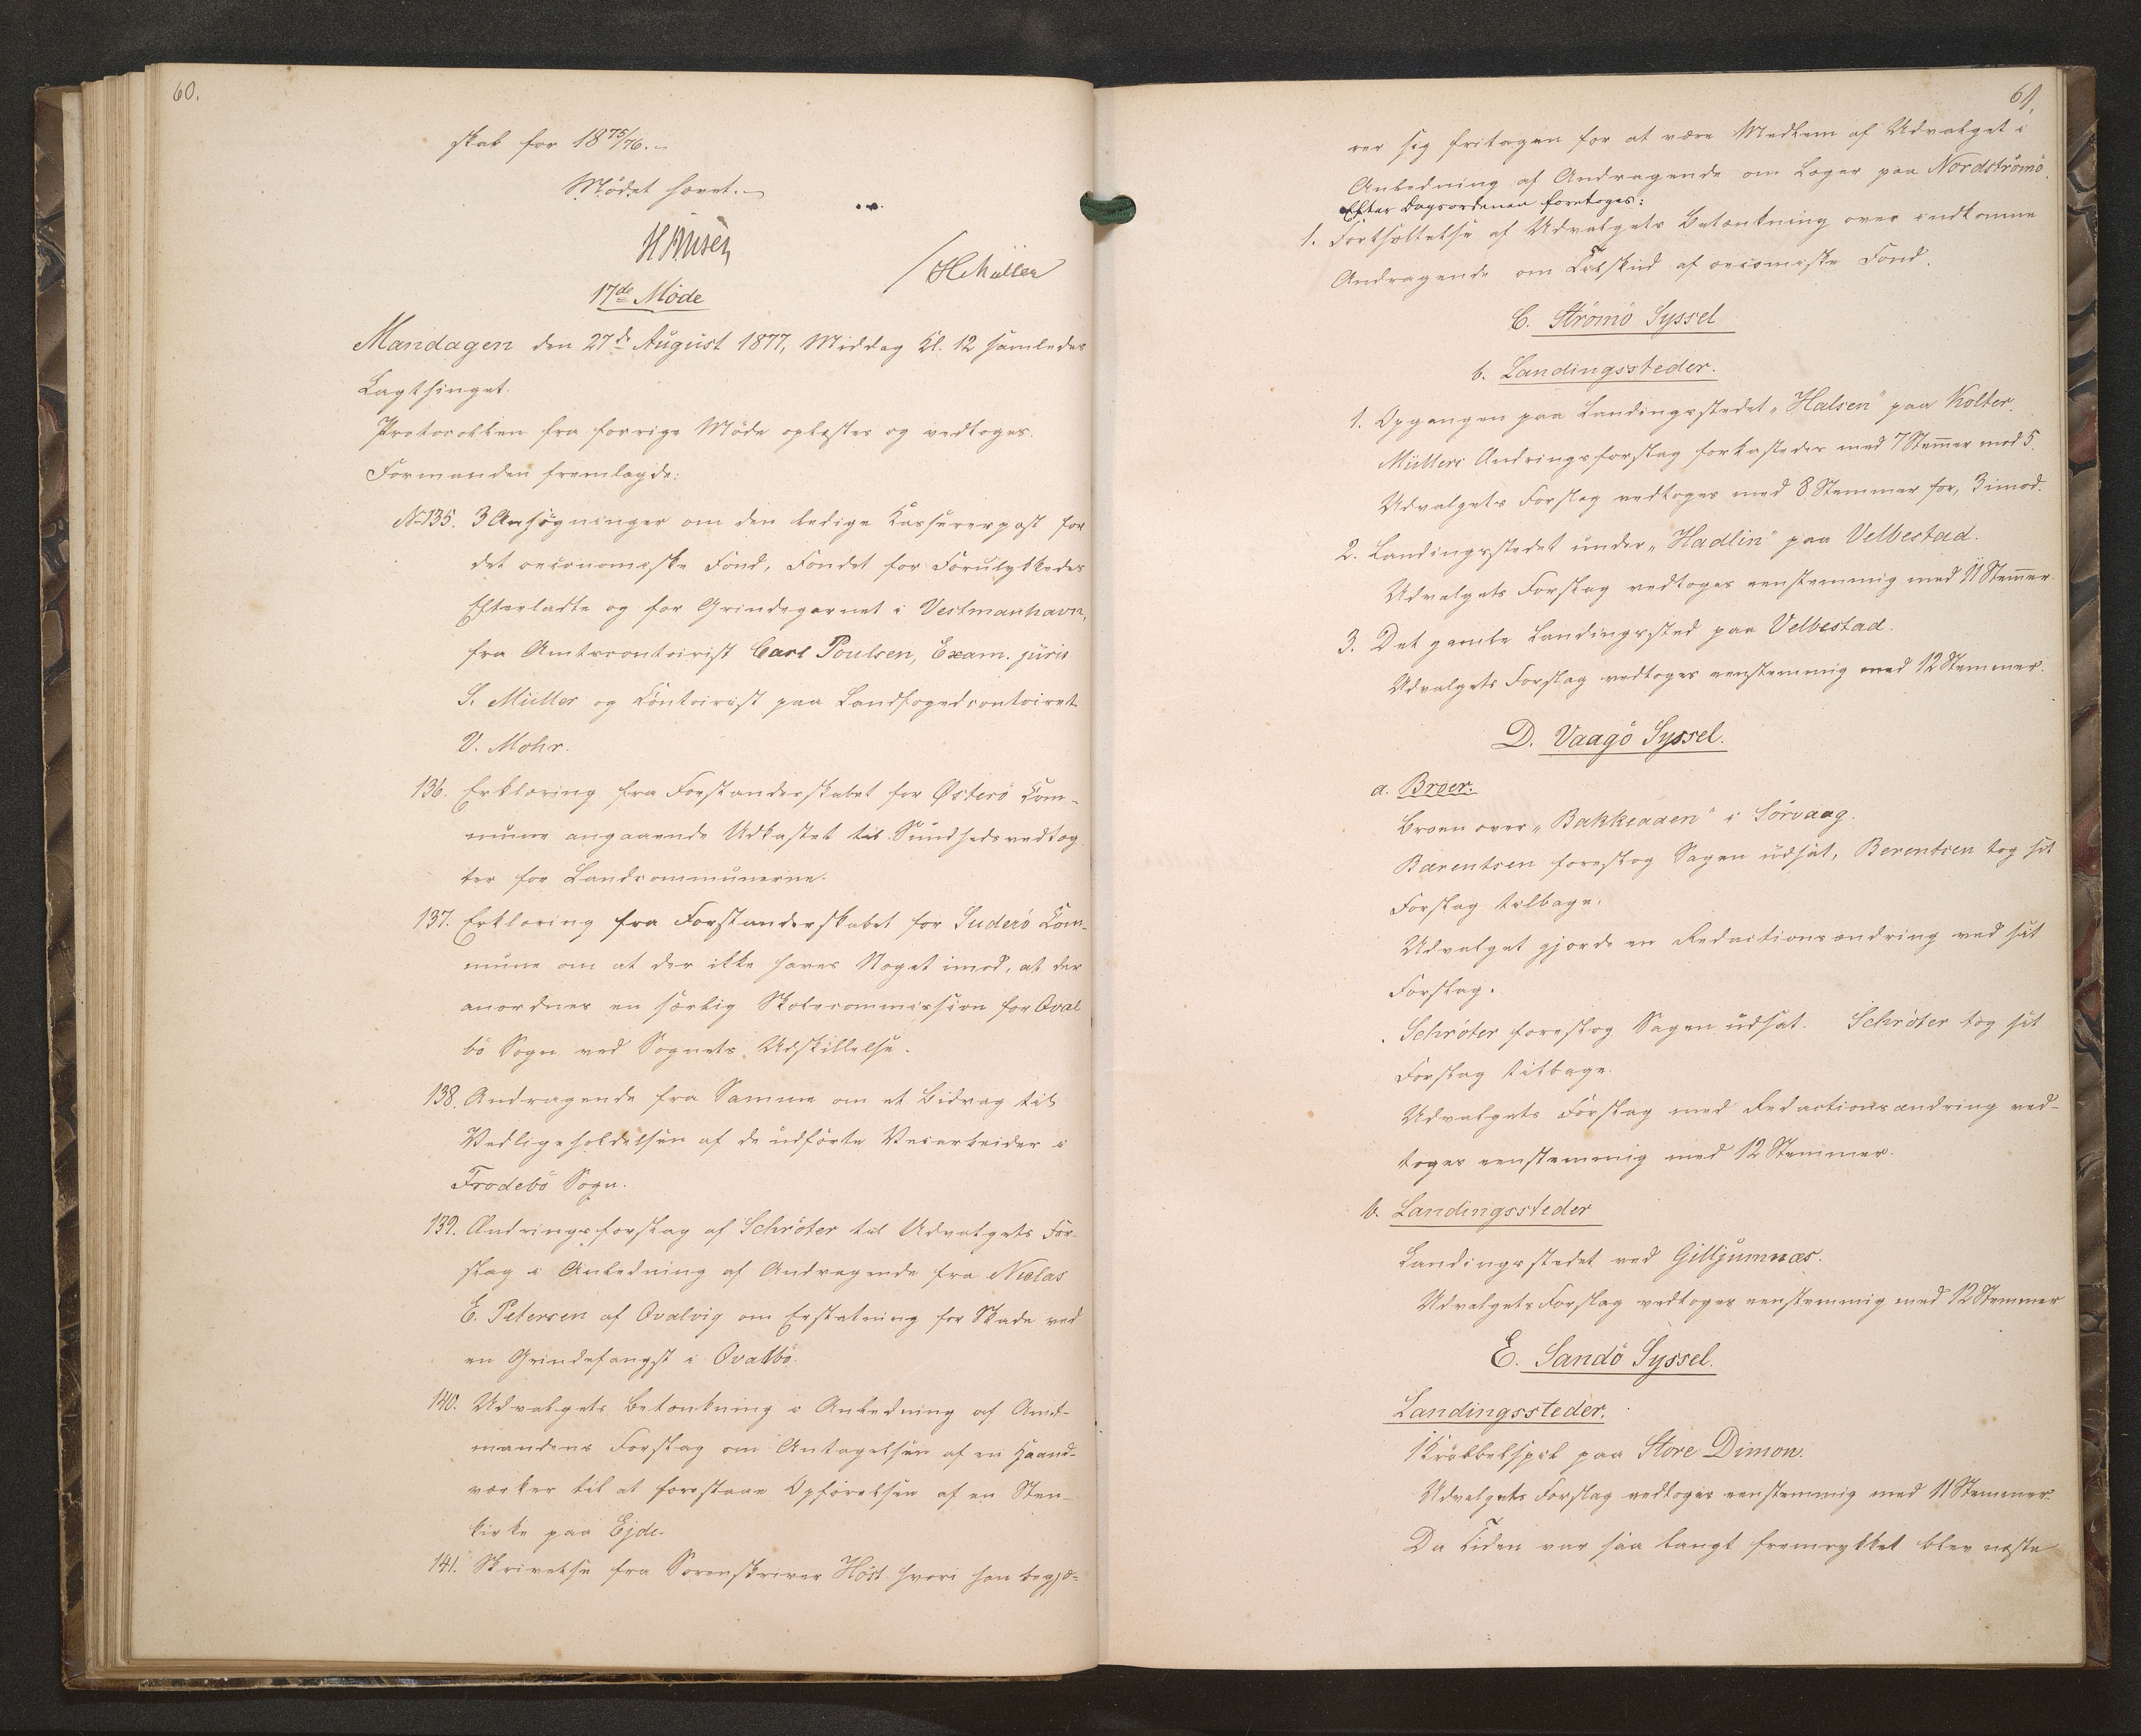 60.
skab for 1875/76.-
Mödet hævet.-
HMüller
17de Möde
Mandagen den 27de August 1877, Middag Kl. 12 samledes
Lagthinget.
Protocollen fra forrige Möde oplæstes og vedtoges.
Formanden fremlagde:
No 135. 3 Ansögninger om den ledige Kassererpost for
det oeconomiske Fond, Fondet for Forulykkedes
Efterladte og for Grindegarnet i Vestmanhavn,
fra Amtscontoirist Carl Poulsen, Exam. juris
S. Müller og Contoirist paa Landfogedcontoiret
V. Mohr.
136. Erklæring fra Forstanderskabet for Østerö Com-
mune angaaende Udkastet til Sundhedsvedtæg
ter for Landcommunerne.
137. Erklæring fra Forstanderskabet for Suderö Com-
mune om at der ikke haves Noget imod, at der
anordnes en særlig Skolecommission for Qval
bö Sogn ved Sognets Udskillelse.
138. Andragende fra Samme om et Bidrag til
Vedligeholdelsen af de udförte Veiarbeider i
Frodebö Sogn.
139. Ændringsforslag af Schröter til Udvalgets For-
slag i Anledning af Andragende fra Niclas
E. Petersen af Qvalvig om Erstatning for Skade ved
en Grindefangst i Qvalbö.
140. Udvalgets Betænkning i Anledning af Amt-
mandens Forslag om Antagelsen af en Haand-
værker til at forestaae Opförelsen af en Sten-
kirke paa Ejde.
141. Skrivelse fra Sorenskriver Höst hvori han begjæ-
61.
rer sig fritagen for at være Medlem af Udvalget i
Anledning af Andragende om Læger paa Nordströmö.
Efter Dagsordenen foretoges:
1. Fortsættelse af Udvalgets Betænkning over indkomne
Andragende om Tilskud af oeconomiske Fond.
C. Strömö Syssel
b. Landingssteder.
1. Opgangen paa Landingsstedet „Halsen" paa Kolter.
Müllers Ændringsforslag forkastedes med 7 Stemmer mod 5.
Udvalgets Forslag vedtoges med 8 Stemmer for, 3 imod.
2. Landingsstedet under „Hadlin" paa Velbestad.
Udvalgets Forslag vedtoges eenstemmig med 11 Stemmer.
3. Det gamle Landingssted paa Velbestad.
Udvalgets Forslag vedtoges eenstemmig med 12 Stemmer.
D. Vaagö Syssel.
a. Broer.
Broen over „Bakkeaaen" i Sörvaag.
Bærentsen foreslog Sagen udsat, Berentsen tog sit
Forslag tilbage.
Udvalget gjorde en Redactionsændring ved sit
Forslag.
Schröter foreslog Sagen udsat. Schröter tog sit
Forslag tilbage.
Udvalgets Forslag med Redactionsændring ved-
toges eenstemmig med 12 Stemmer.
b. Landingssteder
Landingsstedet ved Gilljumnæs.
Udvalgets Forslag vedtoges eenstemmig med 12 Stemmer
E. Sandö Syssel.
Landingssteder.
1 Kröbbelspil paa Store Dimon.
Udvalgets Forslag vedtoges eenstemmig med 11 Stemmer.
Da Tiden var saa langt fremrykket blev næste